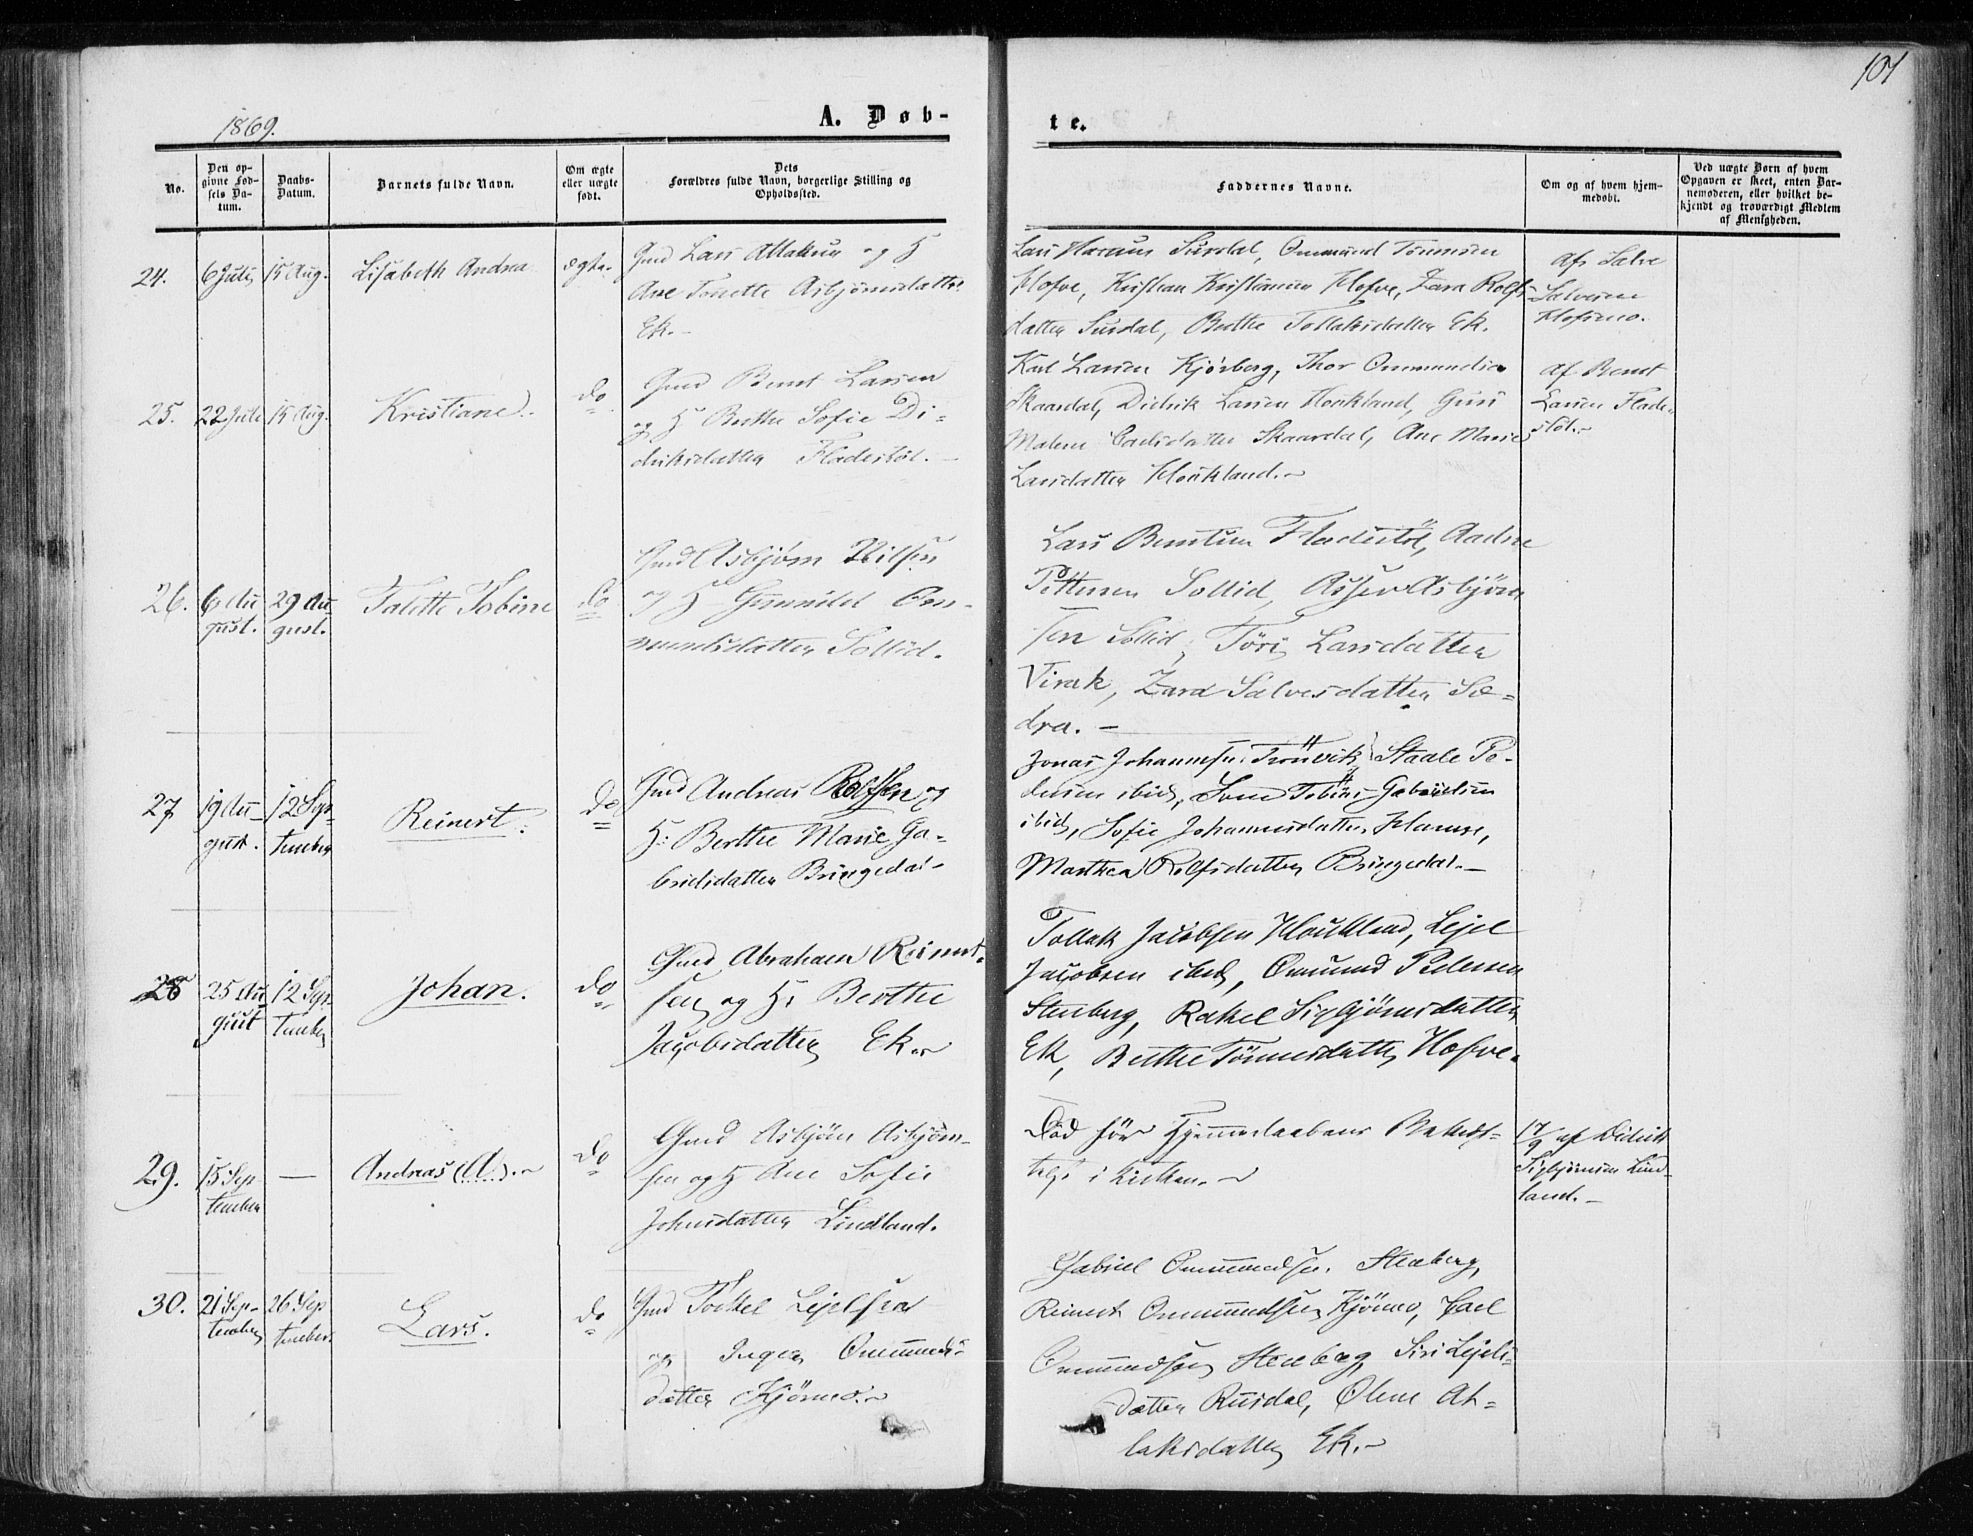 101
1869.
A. Døb-
te.
No.
Den op-
givne Fød-
sels Da-
tum.
Daabs-
Datum.
Barnets fulde Navn.
Om ægte
eller uægte
født.
Dets
Forældres fulde Navn, borgerlige Stilling og
Opholdssted.
Faddernes Navne.
Om og af hvem hjem-
medøbt.
Ved uægte Børn af hvem
Opgaven er skeet, enten Bar-
nemoderen, eller hvilket be-
kjendt og troværdigt Medlem
af Menigheden.
24.
6 Juli
15 Aug.
Lisabeth Andrea
ægte.
Gmd Lars Atlaksen og H
Ane Tonette Asbjørnsdatter
Ek.-
Lars Surdal, Ommund Tønnesen
Hofve, Kristian Kristiansen Hofve, Zara Rolfs-
datter Surdal, Berthe Tollaksdatter Ek.
Af Salve
Salvesen
25.
22 Juli
15 Aug.
Kristiane.
do
Gmd Bernt Larsen
og H Berthe Sofie Di-
driksdatter Fladestøl.-
Karl Larsen Kjørberg, Thor Ommundsen
Skaardal, Didrik Larsen Houkland, Guri
Malene Skaardal, Ane Marie
Larsdatter Houkland.-
Af Bernt
Larsen Flade-
støl.-
26.
6 Au-
gust.
29 Au-
gust.
Talette Tobine
do
Gmd Asbjørn Nilsen
og H Gunnild Om-
mundsdatter Sollid.
Lars Berntsen Fladestøl, Aadne
Pettersen Sollid, Asser Asbjørn-
sen Sollid, Tøri Larsdatter
Virak, Zara Salvesdatter Sæ-
dra.-
27
19 Au-
gust.
12 Sep-
tember
Reinert.
do
Gmd Andreas Rolfsen og
H. Berthe Marie Ga-
brielsdatter Bringedal-
Jonas Johannesen Tronvik, Staale Pe-
dersen ibid, Sven Tobias Gabrielsen
ibid, Sofie Johannesdatter Hamre,
Marthea Rolfsdatter Bringedal.-
28
25 Au
gust
12 Sep-
tember
Johan.
do
Gmd Abraham Reinert-
sen og H. Berthe
Jacobsdatter Ek.
Tollak Jacobsen Houkland, Lejel
Jacobsen ibid, Omund Pedersen
Stenberg, Rakel Sigbjørnsdatter
Ek, Berthe Tønnesdatter Hofve.
29.
15 Sep-
tember
—
Andreas (A).
do
Gmd Asbjørn Asbjørn-
sen og H Ane Sofie
Johnsdatter Lindland.
Død før Hjemmedaabens Bekræft-
telse i Kirken.
17/9 af Didrik
Sigbjørnsen Lind-
land.-
30.
21 Sep-
tember
26 Sep
tember.
Lars.
do
Gmd Torkel Lejelsen
og Inger Ommunds-
datter Kjørmo.
Gabriel Ommundsen Stenberg,
Reinert Ommundsen Kjørmo, Carl
Ommundsen Stenberg, Siri Lejels-
datter Rusdal, Olene At-
laksdatter Ek.-